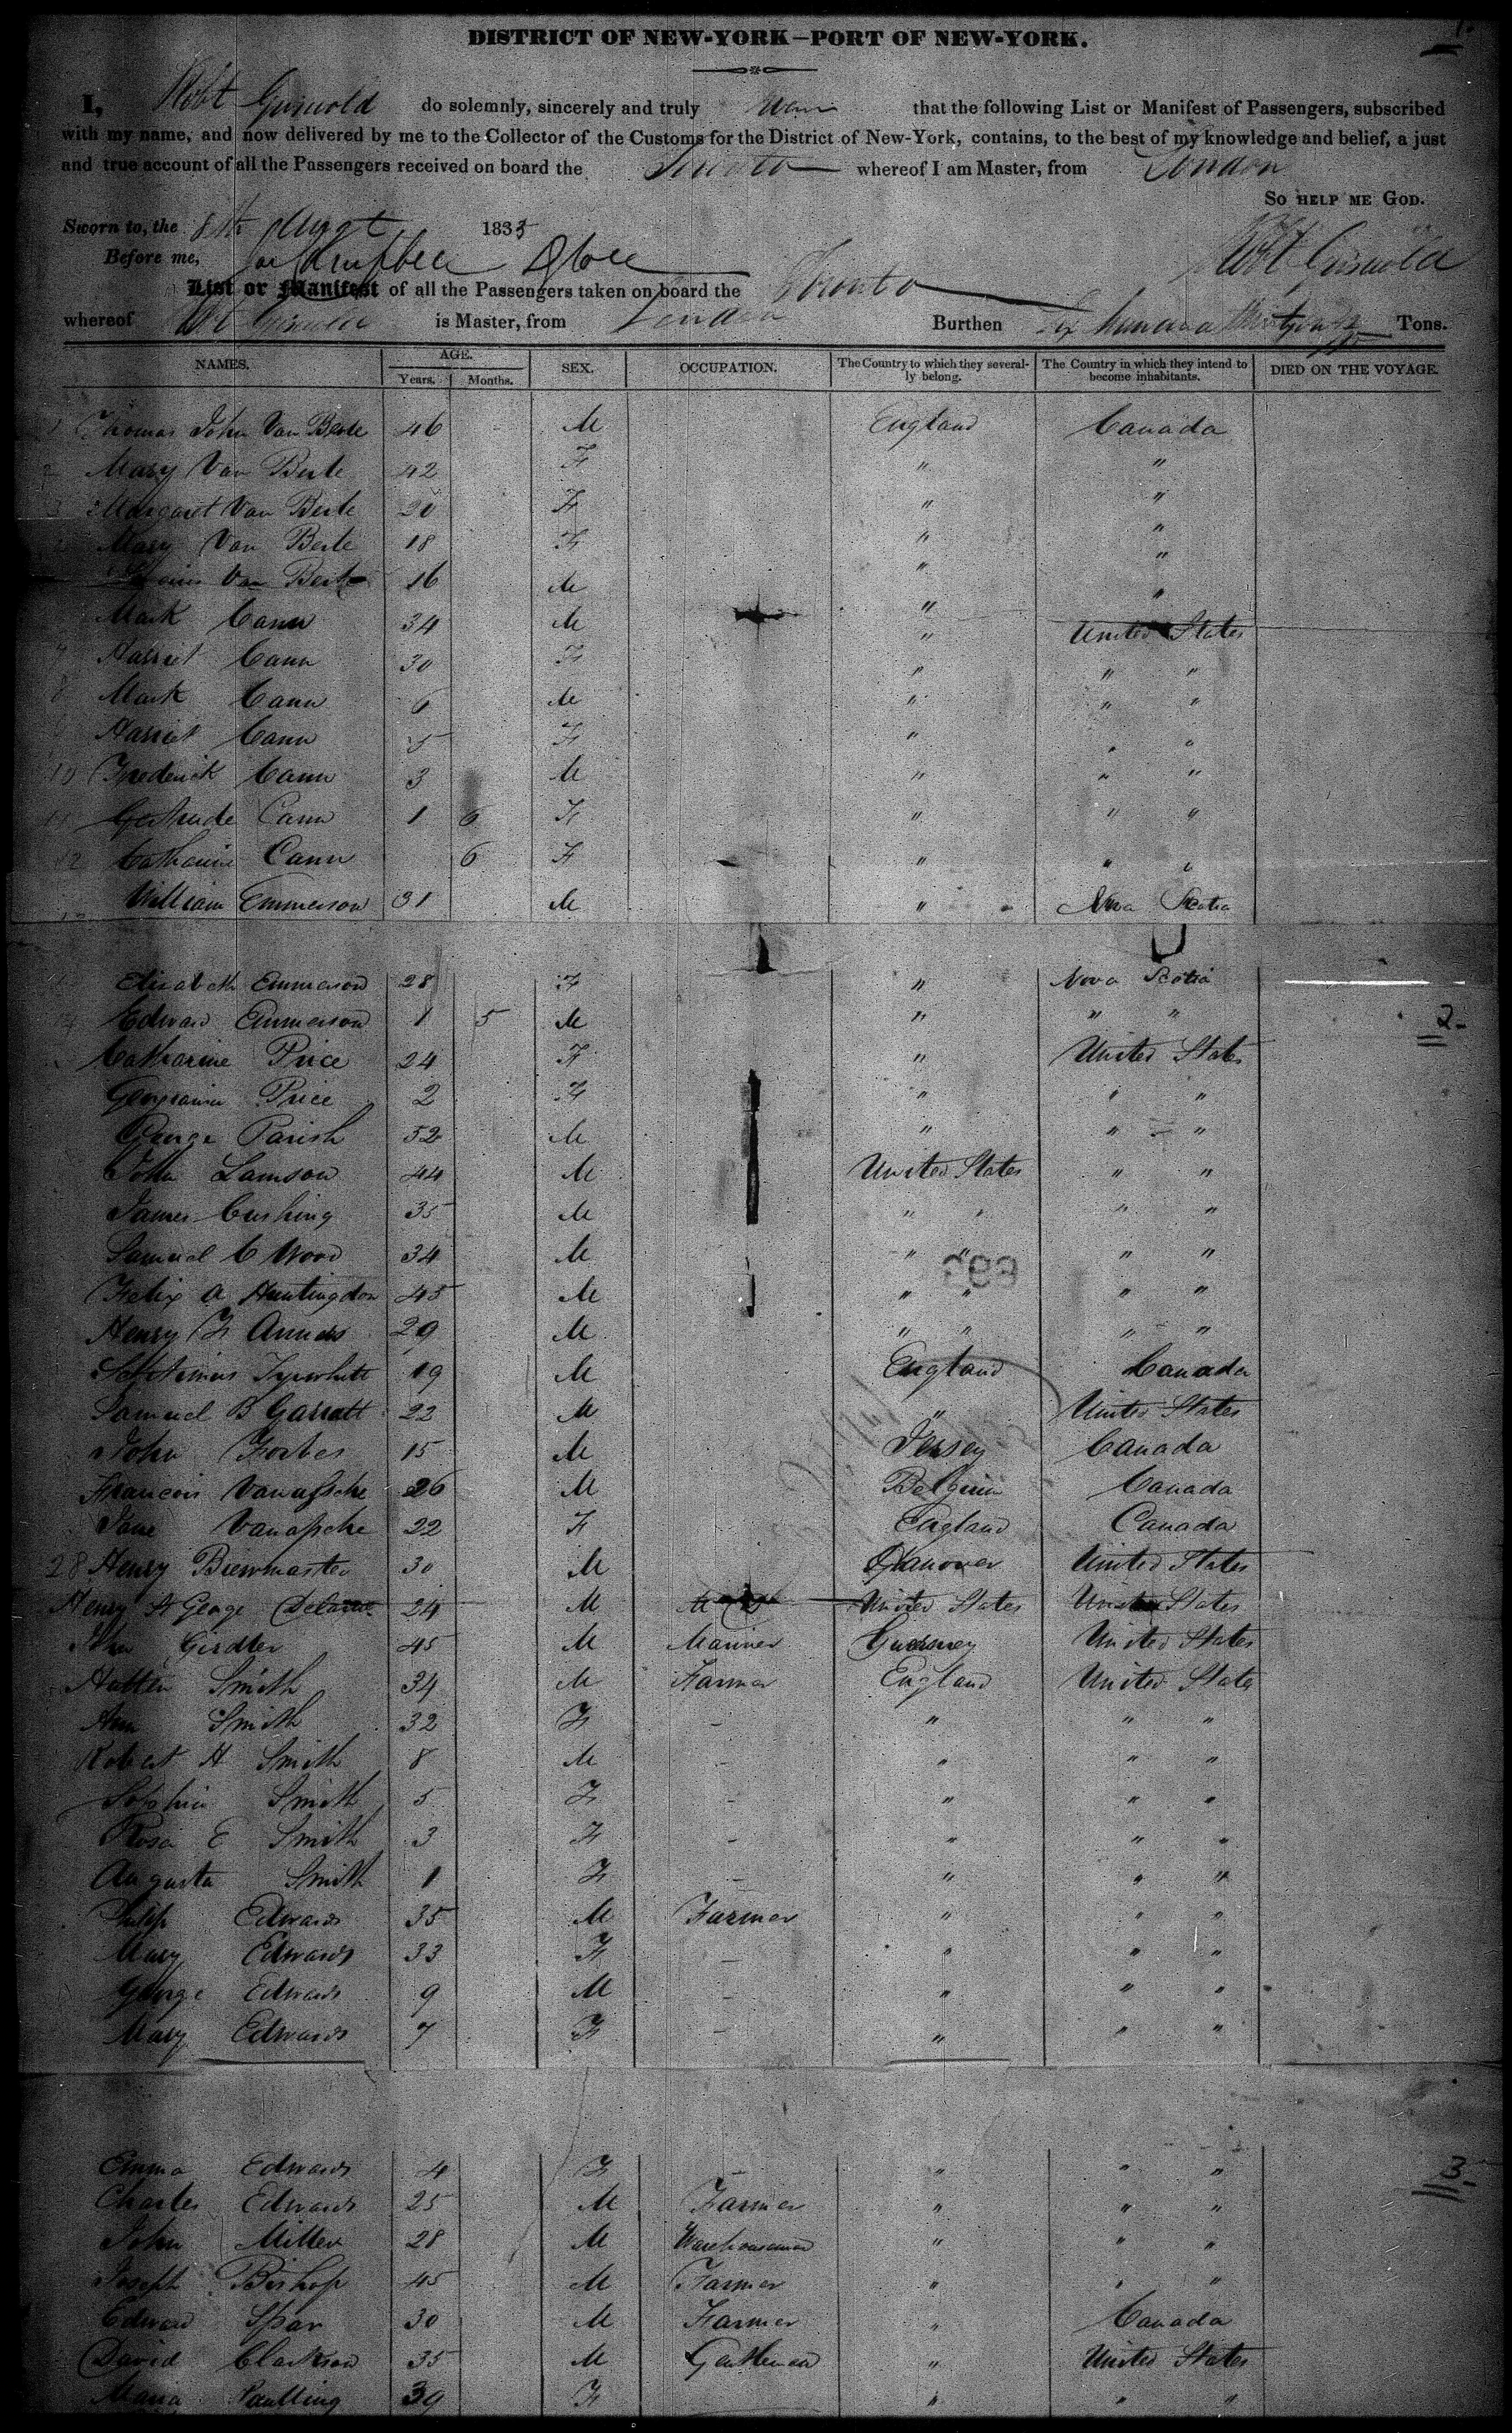 1.
DISTRICT OF NEW-YORK—PORT OF NEW-YORK.
I, Robt Griswold do solemnly, sincerely and truly swear that the following List or Manifest of Passengers, subscribed
with my name, and now delivered by me to the Collector of the Customs for the District of New-York, contains, to the best of my knowledge and belief, a just
and true account of all the Passengers received on board the Toronto whereof I am Master, from London
SO HELP ME GOD.
Sworn to, the 8th Augt 1835
Before me, Robt Griswold
List or Manifest of all the Passengers taken on board the Toronto
whereof Rbt Griswold is Master, from London Burthen Six hundred Tons.
NAMES. AGE. SEX. OCCUPATION. The Country to which they severally belong. The Country in which they intend to become inhabitants. DIED ON THE VOYAGE.
Years. Months.
1 Thomas John Van Beste 46 M England Canada
2 Mary Van Beste 42 F " "
3 Margaret Van Beste 20 F " "
Mary Van Beste 18 F " "
Van Beste 16 M " "
Mark Cann 34 M " United States
7 Harriet Cann 30 F " " "
8 Mark Cann 6 M " " "
9 Harriet Cann 5 F " " "
10 Frederick Cann 3 M " " "
11 Gertrude Cann 1 6 F " " "
12 Catharine Cann 6 F " " "
William Emmerson 31 M " Nova Scotia
Elizabeth Emmerson 28 F " Nova Scotia
Edward Emmerson 1 5 M " " " 2-
Catharine Price 24 F " United States
Georgiana Price 2 F " " "
George Parish 52 M " " "
John Lamson 44 M United States " "
James Cushing 35 M " " " "
Samuel C Wood 34 M " " " "
Felix A Huntingdon 45 M " " " "
Henry F Annes 29 M " " " "
Septimus Tyrwhitt 19 M England Canada
Samuel B Garratt 22 M " United States
John Forbes 15 M Jersey Canada
Francois Vanassche 26 M Belgium Canada
Jane Vanassche 22 F England Canada
28 Henry Brewmaster 30 M Hanover United States
Henry St George 24 M M D United States United States
John Girdler 45 M Mariner Guernsey United States
Smith 34 M Farmer England United States
Ann Smith 32 F - " " "
Robert H Smith 8 M - " " "
Sophia Smith 5 F - " " "
Rosa E Smith 3 F - " " "
Augusta Smith 1 F - " " "
Philip Edwards 35 M Farmer " " "
Mary Edwards 33 F - " " "
George Edwards 9 M - " " "
Mary Edwards 7 F - " " "
Emma Edwards 4 F - " " " 3-
Charles Edwards 25 M Farmer " " "
John Miller 28 M Warehouseman " " "
Joseph Bishop 45 M Farmer " " "
Edward Spar 30 M Farmer " Canada
David Clarkson 35 M Gentleman " United States
Maria Paulling 39 F " " "